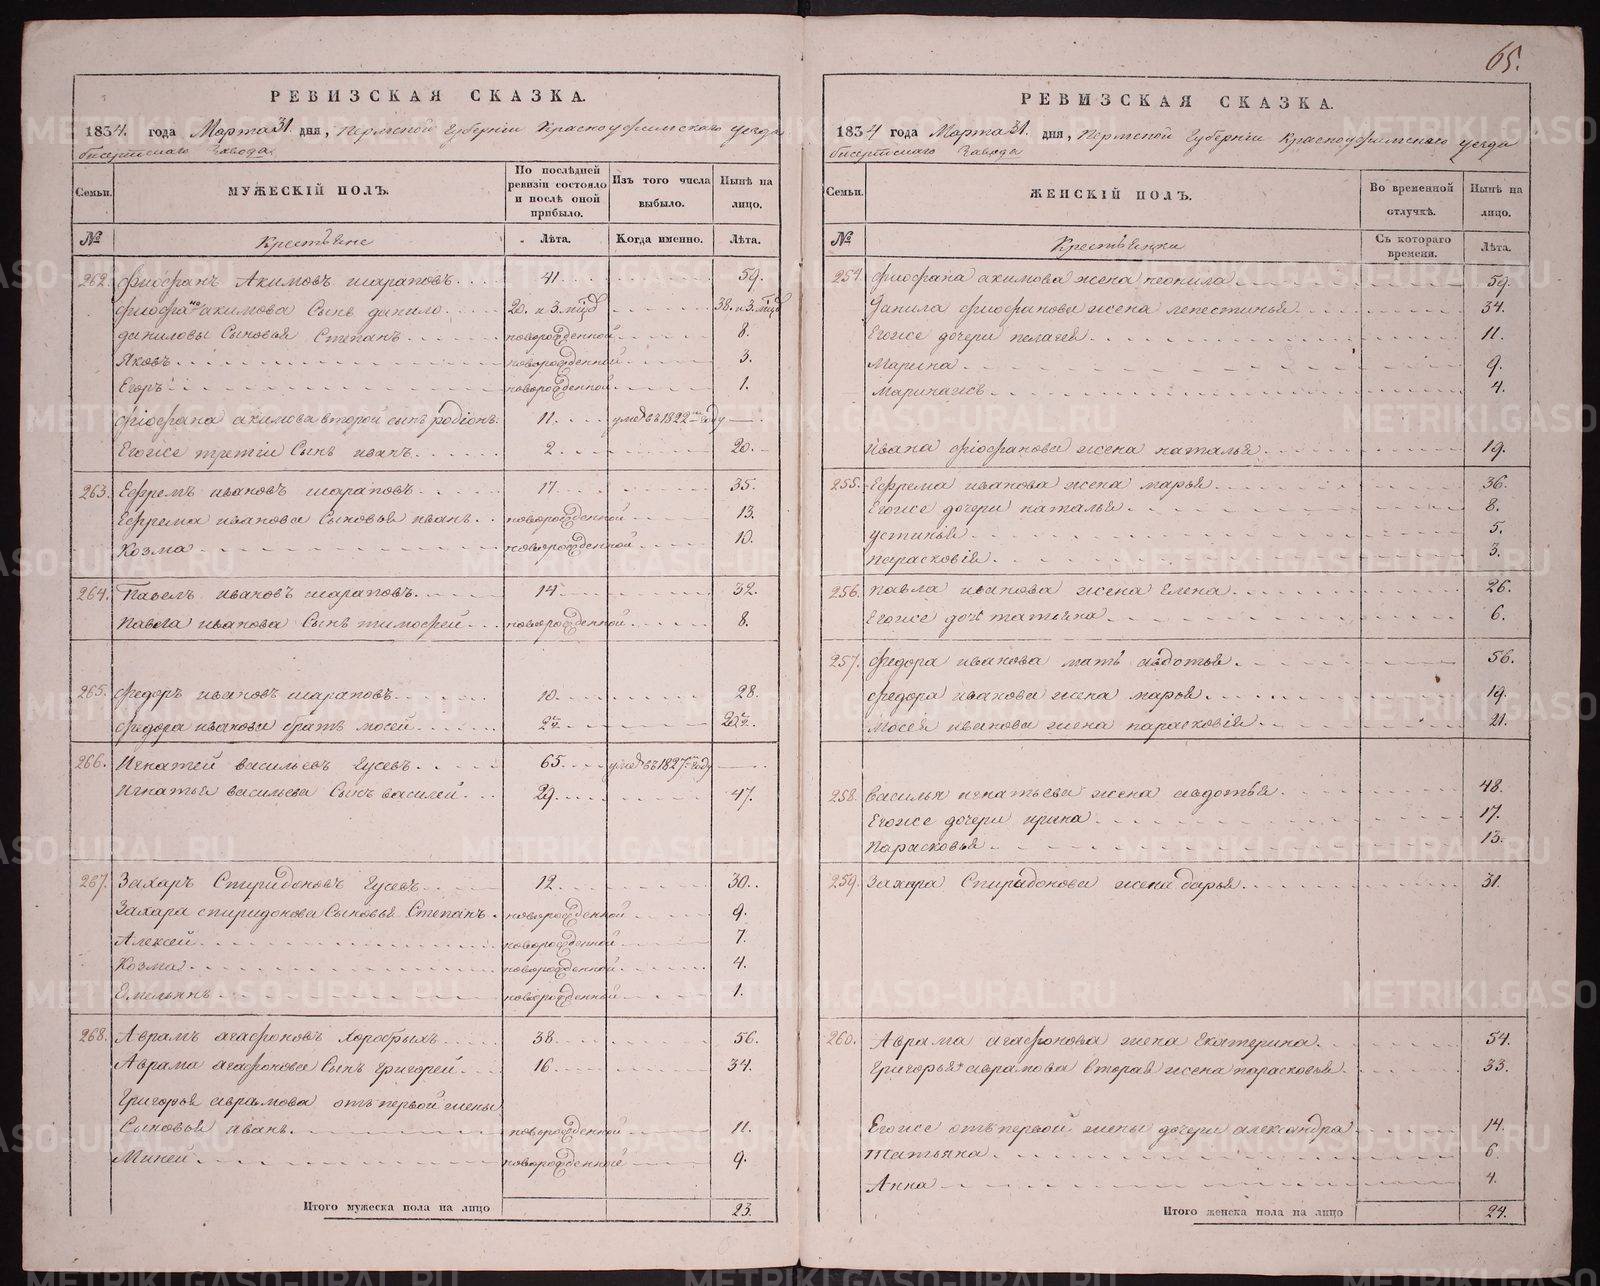 65.
РЕВИЗСКАЯ СКАЗКА.
1834. года Марта 31. дня, Пермской Губернiи Красноуфимскаго уезда
бисертскаго Завода
Семьи. МУЖЕСКIЙ ПОЛЪ. По послѣдней ревизiи состояло и послѣ оной прибыло. Изъ того числа выбыло. Нынѣ на лицо.
№ Крестьяне Лѣта. Когда именно. Лѣта.
262. Фиофанъ Акимовъ шараповъ 41 59.
Фиофана акимова Сынъ данило 20. и 3. мѣц 38. и 3. мѣц
даниловы Сыновья Степанъ новорожденной 8.
Яковъ новорожденной 3.
Егоръ новорожденной 1.
фiофана акимова второй сынъ родiонъ 11 умеръ въ 1822 году
Егоже третiи Сынъ иванъ 2 20.
263. Ефремъ ивановъ шараповъ 17 35.
Ефрема иванова Сыновья иванъ новорожденной 13.
Козма новорожденной 10.
264. Павелъ ивановъ шараповъ 14 32.
Павла иванова Сынъ тимофей новорожденной 8.
265. Федоръ ивановъ шараповъ 10. 28.
Федора иванова братъ мосей 2 20
266. Игнатей васильевъ Гусевъ 65 умеръ въ 1827 году
Игнатья васильева Сынъ василей 29 47.
267. Захаръ Спиридоновъ Гусевъ 12 30.
Захара спиридонова Сыновья Степанъ новорожденной 9.
Алексей новорожденной 7.
Козма новорожденной 4.
Емельянъ новорожденной 1.
268. Аврамъ агафоновъ Хоробрыхъ 38 56.
Аврама агафонова Сынъ григорей 16 34.
Григорья аврамова отъ первой жены
Сыновья иванъ новорожденной 11.
Миней новорожденной 9.
Итого мужеска пола на лицо 23.
РЕВИЗСКАЯ СКАЗКА.
1834 года Марта 31. дня, Пермской Губернiи Красноуфимскаго уезда
бисертскаго Завода
Семьи. ЖЕНСКIЙ ПОЛЪ. Во временной отлучкѣ. Нынѣ на лицо.
№ Крестьянки Съ котораго времени. Лѣта.
254. Фиофана акимова жена неонила 59.
Данила фиофанова жена пепестинья 34.
Егоже дочери пелагея 11.
Марина 9.
Марина же 4.
Ивана фiофанова жена наталья 19.
255. Ефрема иванова жена марья 36.
Егоже дочери наталья 8.
устинья 5.
парасковiя 3.
256. Павла иванова жена Елена 26.
Егоже дочь татьяна 6.
257. Федора иванова мать авдотья 56.
Федора иванова жена марья 19.
Мосея иванова жена парасковiя 21.
258. Василья игнатьева жена авдотья 48.
Егоже дочери ирина 17.
Парасковья 13.
259. Захара Спирадонова жена дарья 31.
260. Аврама агафонова жена Екатерина 54.
Григорья аврамова вторая жена парасковья 33.
Егоже отъ первой жены дочери александра 14.
Татьяна 6.
Анна 4.
Итого женска пола на лицо 24.
METRIKI.GASO-URAL.RU